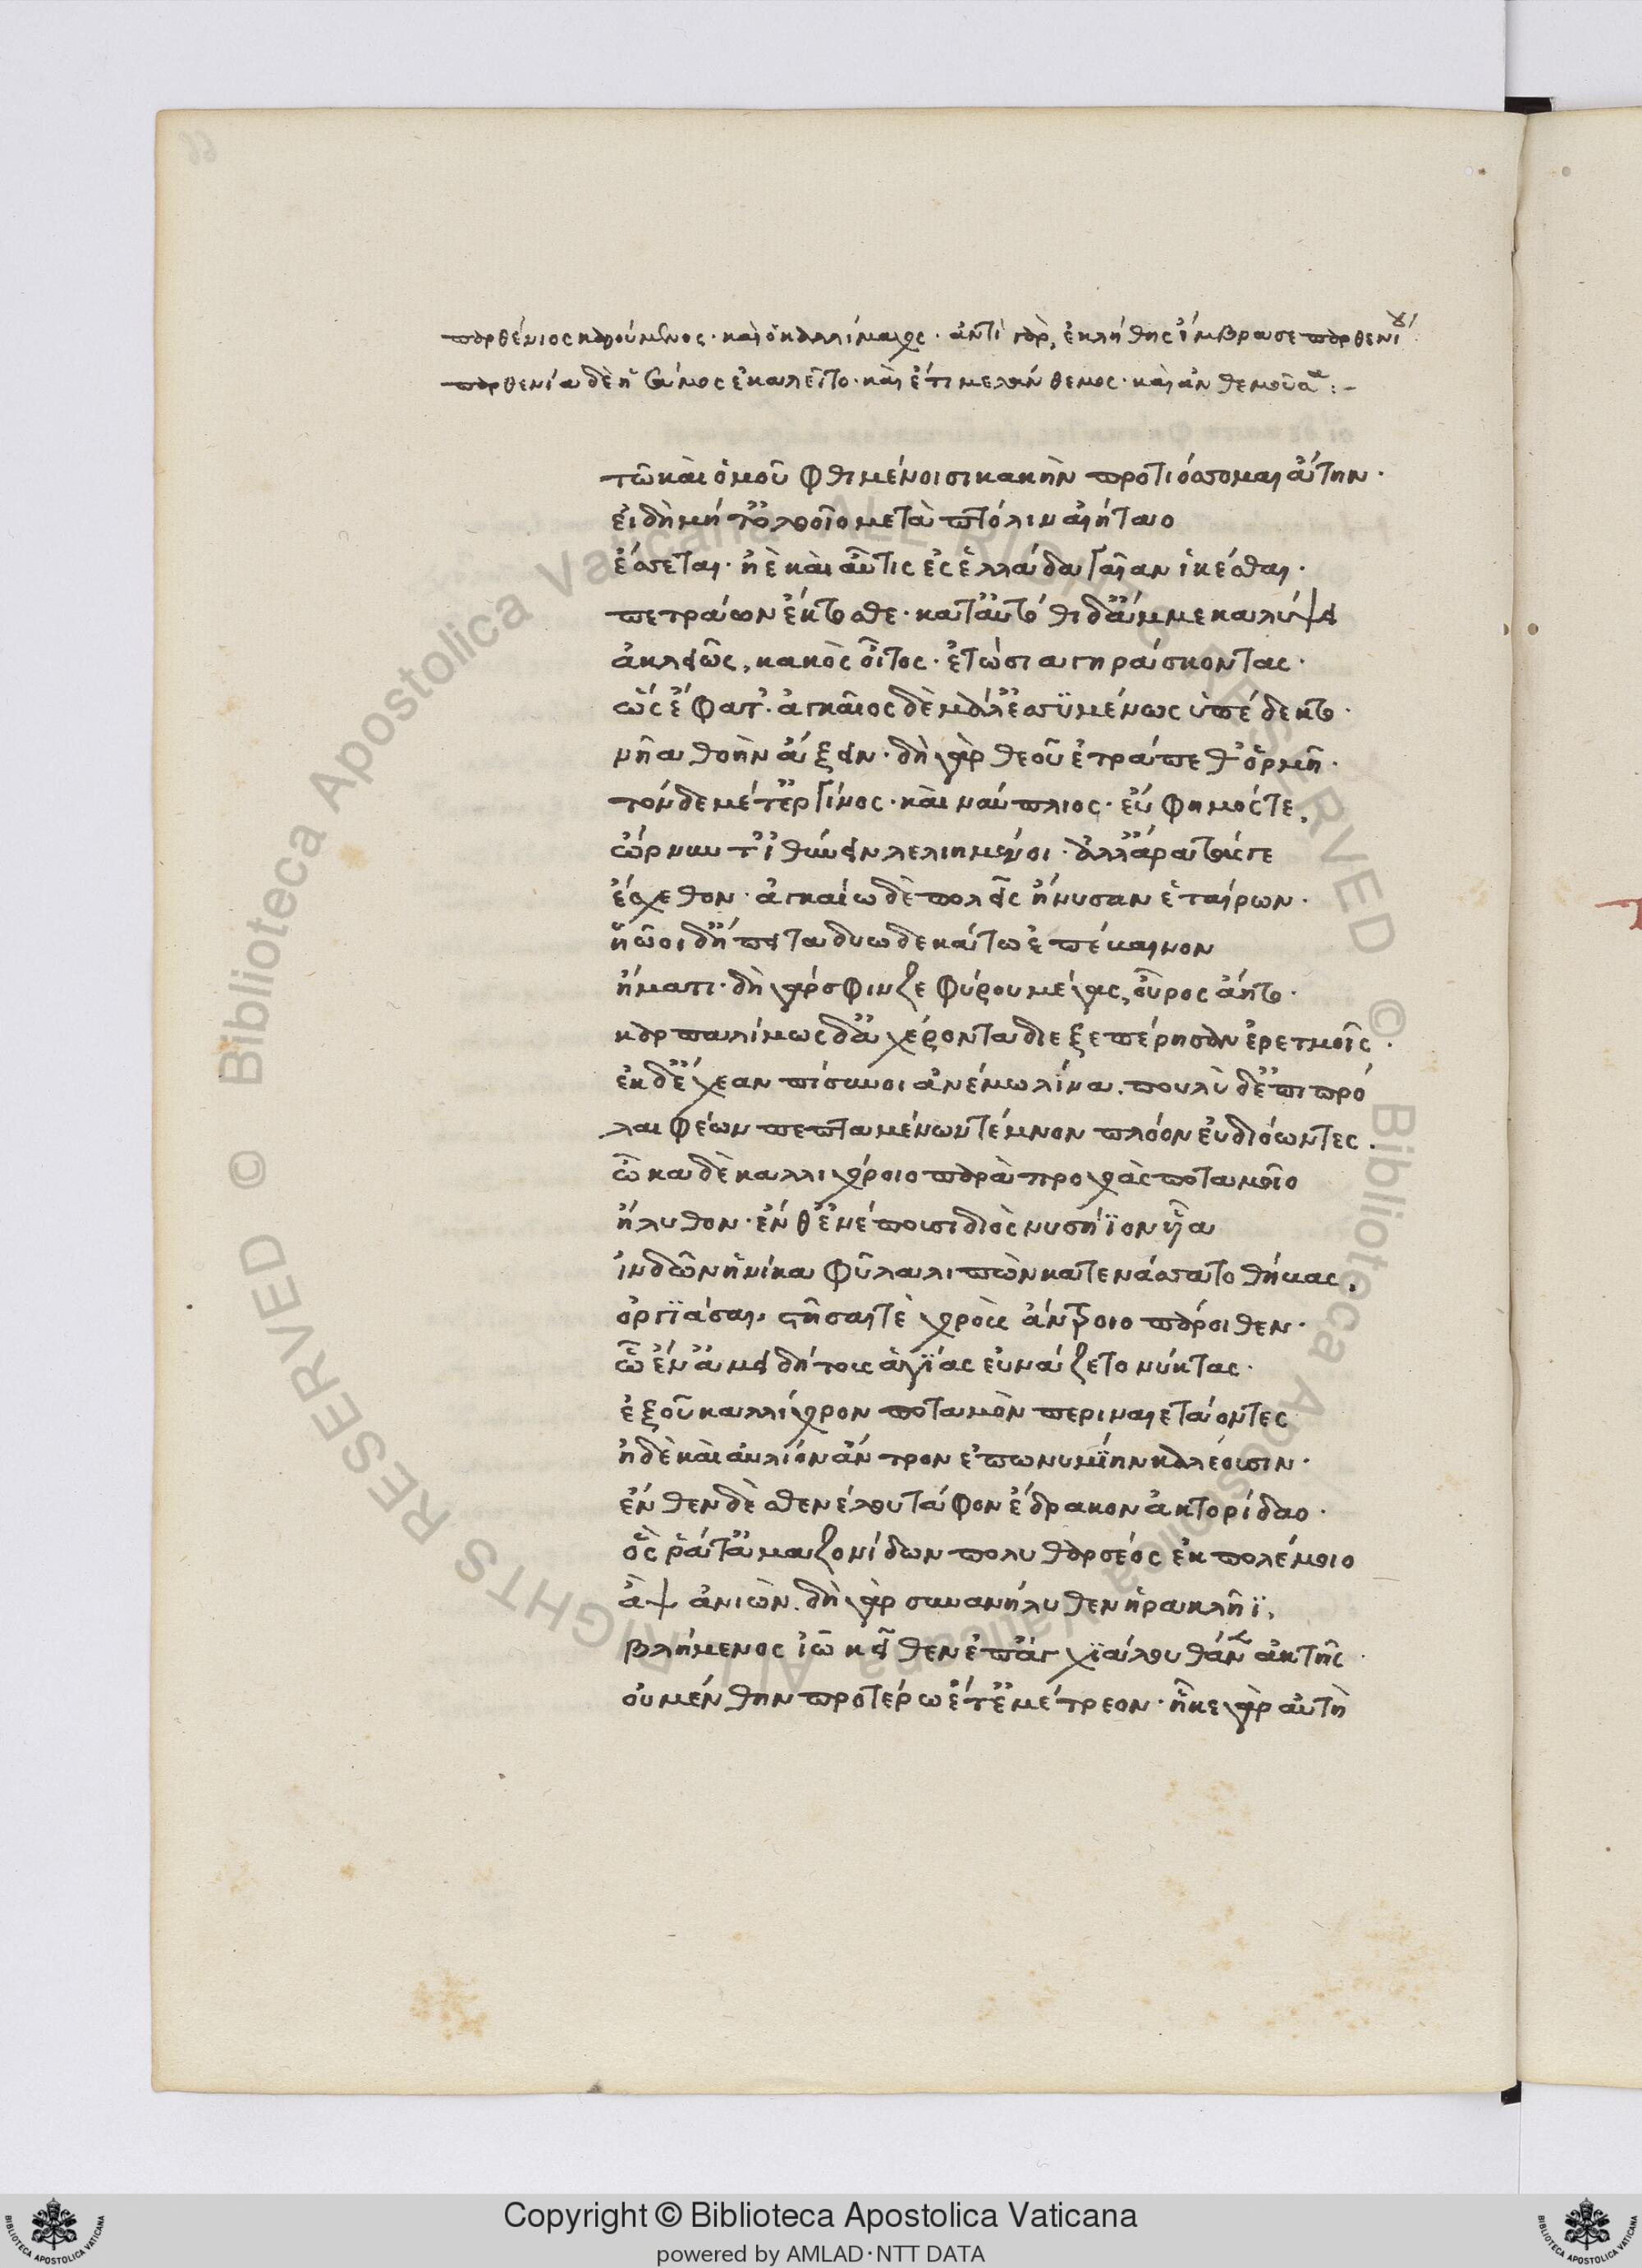 παρθένιος καλούμενος· καὶ ὁ καλλίμαχος· ἀντὶ γὰρ, ἐκλήθης ἴμβρασε παρθενίου
παρθενία δὲ ἡ σάμος ἐκαλεῖτο· καὶ ἔτι μελάνθεμος· καὶ ἀνθεμοῦσα:-
τῶ καὶ ὁμοῦ φθιμένοισι κακὴν προτιόσσομαι ἄτην·
εἰ δὴ μήτ' ὀλοοῖο μετὰ πτόλιν αἰήταο
ἔσσεται· ἠὲ καὶ αὖτις ἐς ἑλλάδα γαῖαν ἱκέσθαι·
πετράων ἔκτοσθε· κατ' αὐτόθι δ' ἄμμε καλύψει
ἀκλειῶς, κακὸς οἶτος· ἐτώσια γηράσκοντας·
ὣς ἔφατ'· ἀγκαῖος δὲ μάλ' ἐσσϋμένως ὑπέδεκτο·
νῆα θοὴν ἄξειν· δὴ γὰρ θεοῦ ἐτράπεθ' ὁρμῆ·
τὸν δὲ μέτ' ἐργίνος· καὶ ναύπλιος· εὔφημός τε,
ὤρνυντ' ἰθύνειν λελιημένοι· ἀλλ' ἄρα τούσγε
ἔσχεθον· ἀγκαίω δὲ πολεῖς ἤνυσαν ἑταίρων·
ἠῶοι δ' ἤπειτα δυωδεκάτω ἐπέβαινον
ἤματι· δὴ γάρ σφιν ζεφύρου μέγας, οὖρος ἄητο·
καρπαλίμως δ' ἀχέροντα διεξεπέρησαν ἐρετμοῖς·
ἐκ δ' ἔχεαν πίσυνοι ἀνέμω λίνα. πουλὺ δ' ἐπιπρό
λαιφέων πεπταμένων τέμνον πλόον εὐδιόωντες.
ὦκα δὲ καλλιχόροιο παρὰ προχοὰς ποταμοῖο
ἤλυθον· ἔνθ' ἐνέπουσι διὸς νυσήϊον ἷja
ἰνδῶν ἡνίκα φῦλα λιπὼν κατενάσσατο θήβας,
ὀργϊάσαι, στῆσαί τὲ χοροὺς ἄντροιο πάροιθεν·
ὧ ἐν ἀμειδήτους ἁγίας εὐνάζετο νύκτας·
ἐξ οὗ καλλίχορον ποταμὸν περιναιετάοντες
ἠδὲ καὶ αὐλίον ἄντρον ἐπωνυμΐην καλέουσιν·
ἔνθεν δὲ σθενέλου τάφον ἔδρακον ἀκτορίδαο·
ὅς ῥά τ' ἀμαζονίδων πολυθαρσέος ἐκ πολέμοιο
ἂψ ἀνιὼν. δὴ γὰρ συνανήλυθεν ἡρακλῆϊ,
βλήμενος ἰῶ κεῖθεν ἐπ' ἀγχϊάλου θάνεν ἀκτῆς·
οὐ μέν θην προτέρω ἔτ' ἐμέτρεον· ἧκε γὰρ αὐτὴ
Copyright © Biblioteca Apostolica Vaticana
powered by AMLAD·NTT DATA